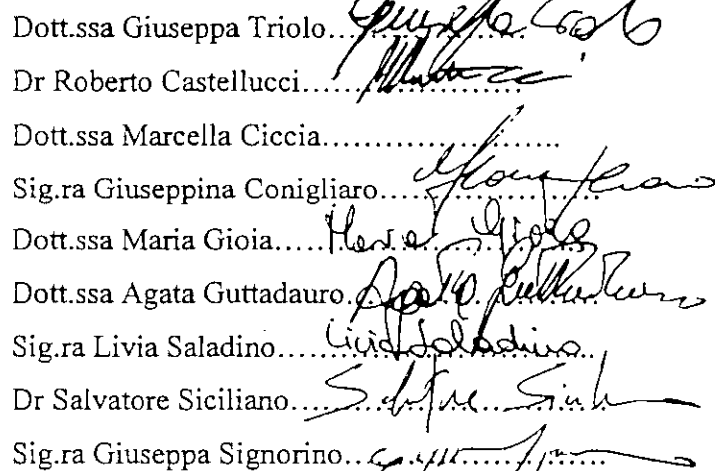 Dott.ssa Giuseppa Triolo.... Giuseppa Triolo
Dr Roberto Castellucci......
Dott.ssa Marcella Ciccia........................
Sig.ra Giuseppina Conigliaro....
Dott.ssa Maria Gioia..... Maria Gioia
Dott.ssa Agata Guttadauro. Agata Guttadauro
Sig.ra Livia Saladino..... Livia Saladino
Dr Salvatore Siciliano.... Salvatore
Sig.ra Giuseppa Signorino..